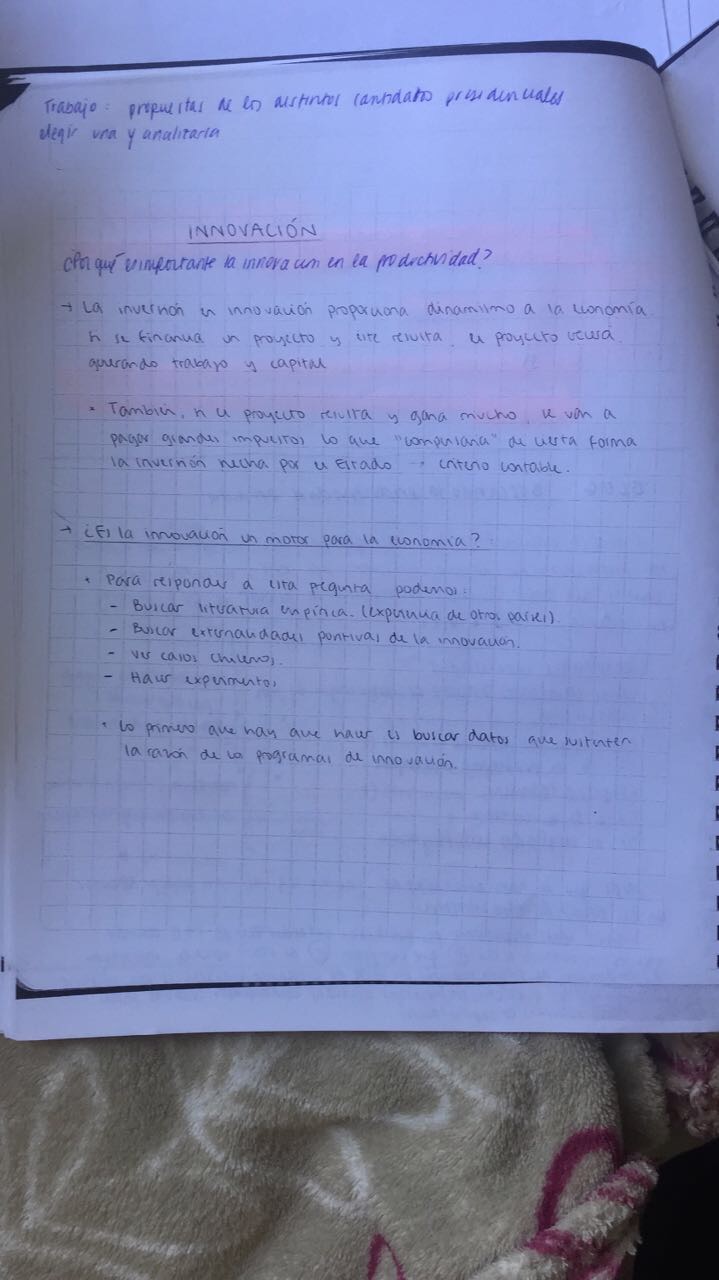 Trabajo: propuestas de los distintos candidatos presidenciales
elegir una y analizarla
INNOVACIÓN
¿Por qué es importante la innovación en la productividad?
→ La inversión en innovación proporciona dinamismo a la economía.
si se financia un proyecto y este resulta, el proyecto crecerá
generando trabajo y capital
• También, si el proyecto resulta y gana mucho, se van a
pagar grandes impuestos lo que "compensaría" de cierta forma
la inversión hecha por el Estado → criterio contable.
→ ¿Es la innovación un motor para la economía?
• Para responder a esta pregunta podemos:
- Buscar literatura empírica. (experiencia de otros países).
- Buscar externalidades positivas de la innovación.
- Ver casos chilenos.
- Hacer experimentos
• Lo primero que hay que hacer es buscar datos que sustenten
la razón de los programas de innovación.